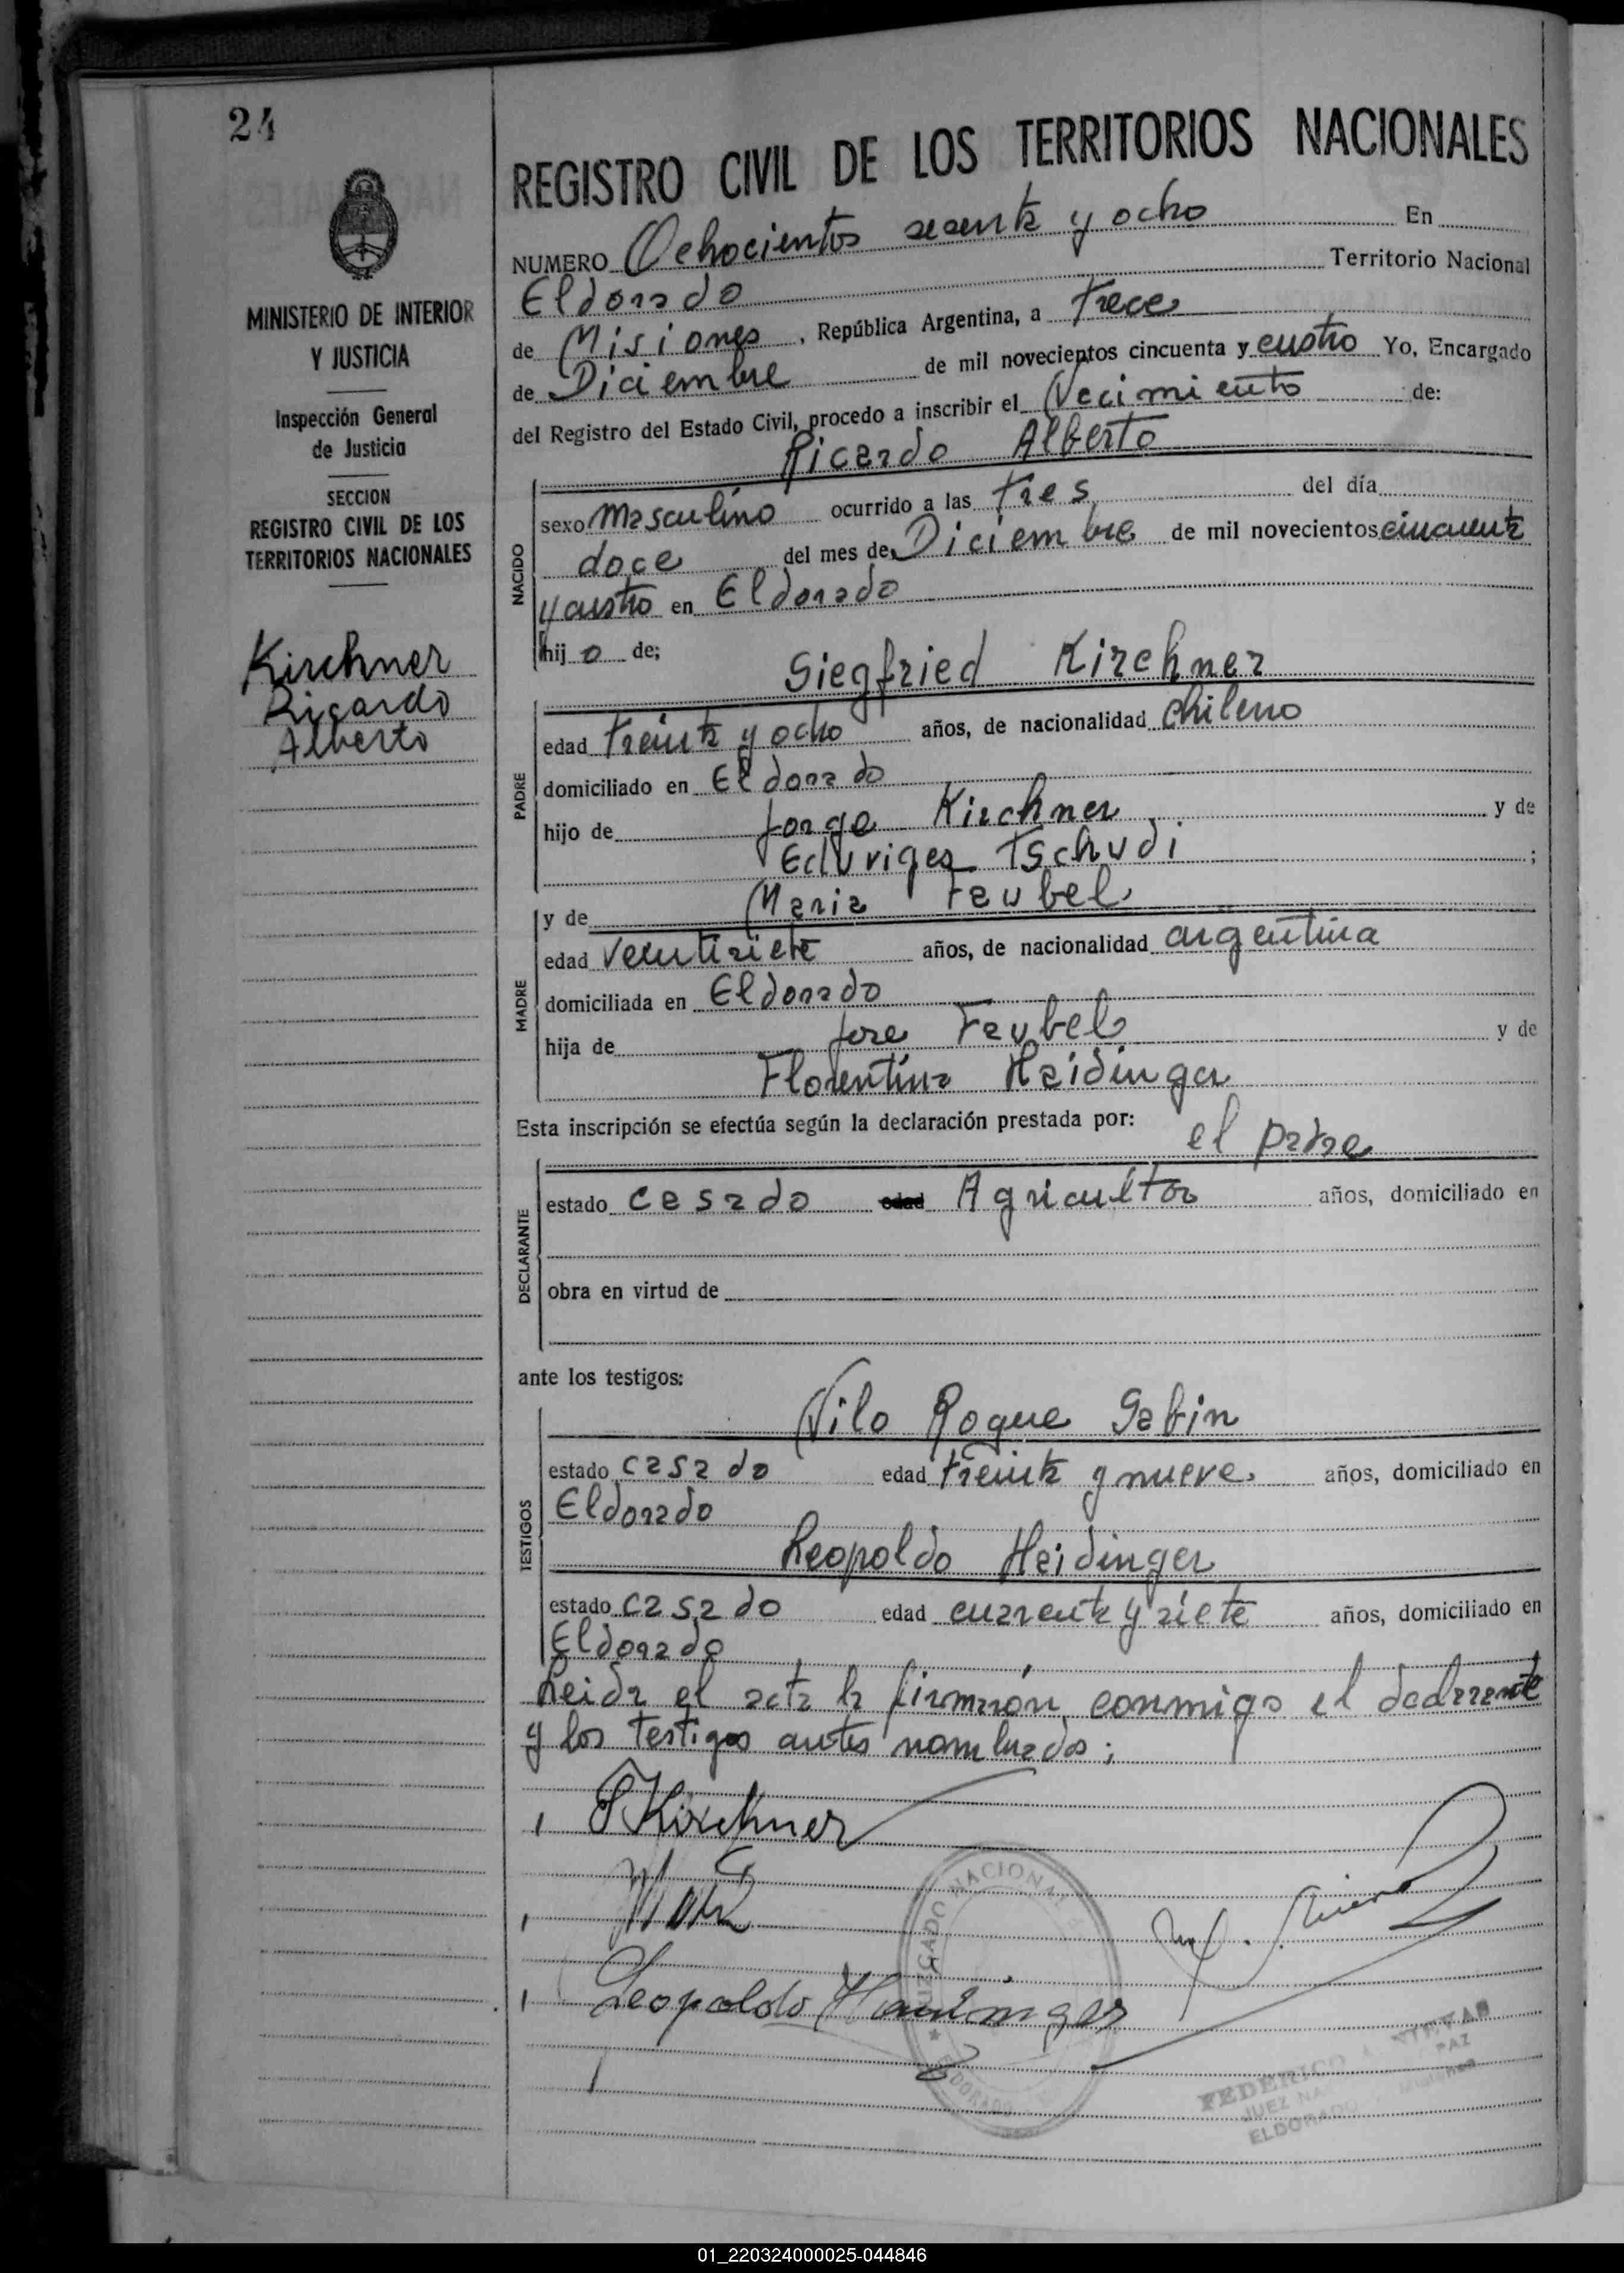 24
REGISTRO CIVIL DE LOS TERRITORIOS NACIONALES
MINISTERIO DE INTERIOR
Y JUSTICIA
Inspección General
de Justicia
SECCION
REGISTRO CIVIL DE LOS
TERRITORIOS NACIONALES
Kirchner
Ricardo
Alberto
NUMERO Ochocientos sesenta y ocho En
Eldorado Territorio Nacional
de Misiones, República Argentina, a trece
de Diciembre de mil novecientos cincuenta y cuatro Yo, Encargado
del Registro del Estado Civil, procedo a inscribir el Nacimiento de:
Ricardo Alberto
NACIDO
sexo Masculino ocurrido a las tres del día
doce del mes de Diciembre de mil novecientos cincuenta
y cuatro en Eldorado
hijo de;
Siegfried Kirchner
PADRE
edad treinta y ocho años, de nacionalidad chileno
domiciliado en Eldorado
hijo de Jorge Kirchner y de
Eduviges Tschudi ;
MADRE
y de Maria Faubel
edad veintisiete años, de nacionalidad argentina
domiciliada en Eldorado
hija de Jose Faubel y de
Florentina Haidinger
Esta inscripción se efectúa según la declaración prestada por:
el padre
DECLARANTE
estado casado edad Agricultor años, domiciliado en
obra en virtud de
ante los testigos:
TESTIGOS
Nilo Roque Gabin
estado casado edad treinta y nueve años, domiciliado en
Eldorado
Leopoldo Heidinger
estado casado edad cuarenta y siete años, domiciliado en
Eldorado
Leida el acta la firmarón conmigo el declarante
y los testigos antes nombrados;
S Kirchner
Leopoldo Haidinger
JUZGADO NACIONAL
ELDORADO
FEDERICO A. NIEVAS
JUEZ NA PAZ
ELDORADO Misiones
01_220324000025-044846